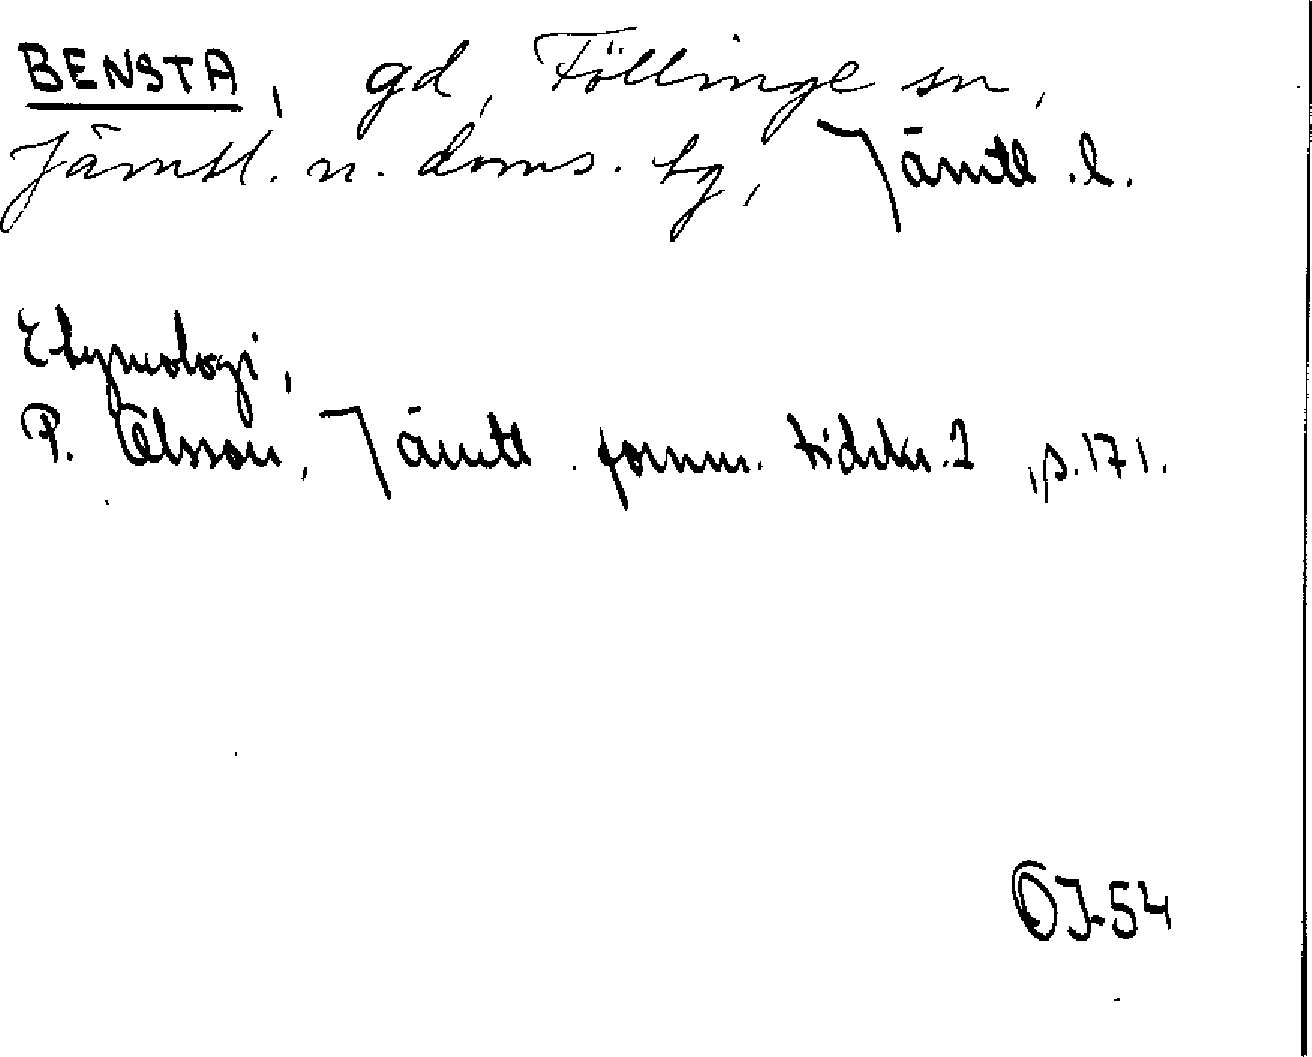 BENSTA, gd, Föllinge sn,
Jämtl. n. doms. tg, Jämtl. l.
Etymologi,
P. Olsson, Jämtl. fornm. tidskr. 1, s. 171.
OJ-54